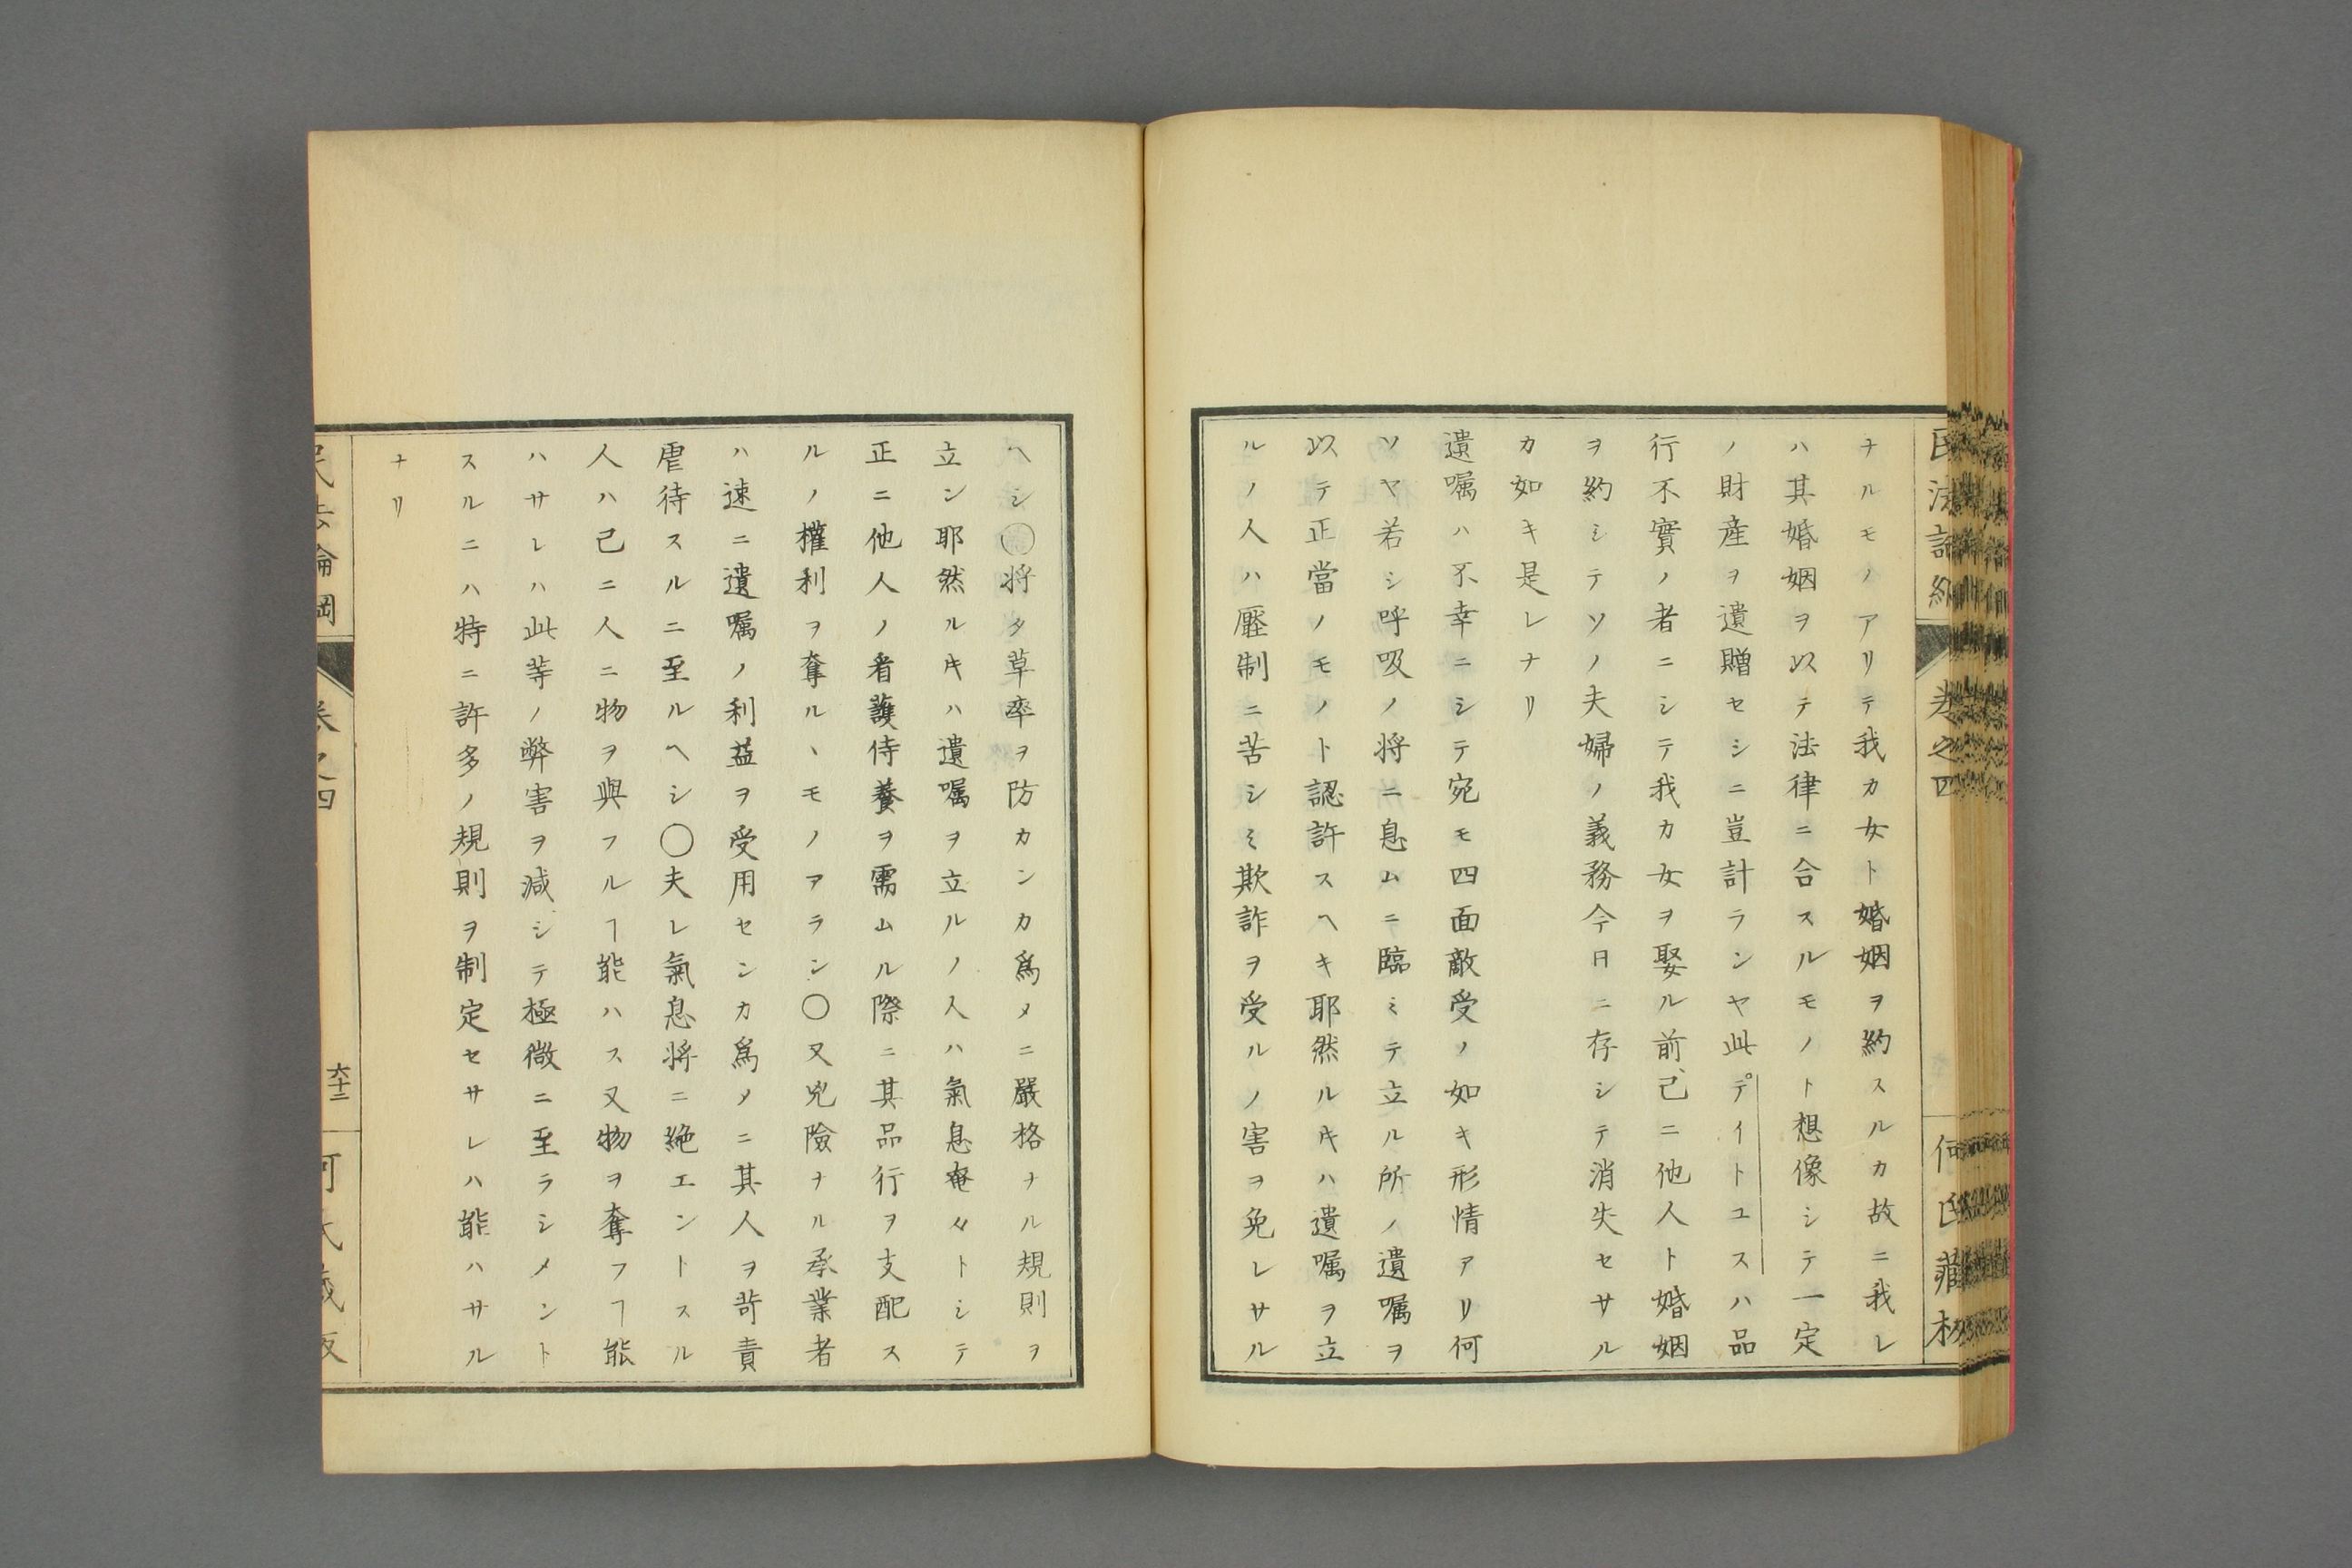 ナルモノアリテ我カ女ト婚姻ヲ約スルカ故ニ我レ
ハ其婚姻ヲ以テ法律ニ合スルモノト想像シテ一定
ノ財産ヲ遺贈セシニ豈計ランヤ此デイトユスハ品
行不實ノ者ニシテ我カ女ヲ娶ル前已ニ他人ト婚姻
ヲ約シテソノ夫婦ノ義務今日ニ存シテ消失セサル
カ如キ是レナリ
遺嘱ハ不幸ニシテ宛モ四面敵受ノ如キ形情アリ何
ソヤ若シ呼吸ノ将ニ息ムニ臨ミテ立ル所ノ遺嘱ヲ
以テ正當ノモノト認許スヘキ耶然ルキハ遺嘱ヲ立
ルノ人ハ壓制ニ苦シミ欺詐ヲ受ルノ害ヲ免レサル
ヘシ〇将タ草卒ヲ防カンカ爲メニ嚴格ナル規則ヲ
立ン耶然ルキハ遺嘱ヲ立ルノ人ハ氣息奄々トシテ
正ニ他人ノ看護侍養ヲ需ムル際ニ其品行ヲ支配ス
ルノ權利ヲ奪ルヽモノアラン〇又兇險ナル承業者
ハ速ニ遺嘱ノ利益ヲ受用センカ爲メニ其人ヲ苛責
虐待スルニ至ルヘシ〇夫レ氣息将ニ絶エントスル
人ハ己ニ人ニ物ヲ與フルヿ能ハス又物ヲ奪フヿ能
ハサレハ此等ノ弊害ヲ減シテ極微ニ至ラシメント
スルニハ特ニ許多ノ規則ヲ制定セサレハ能ハサル
ナリ
民法論綱
卷之四
六十三
何氏藏版